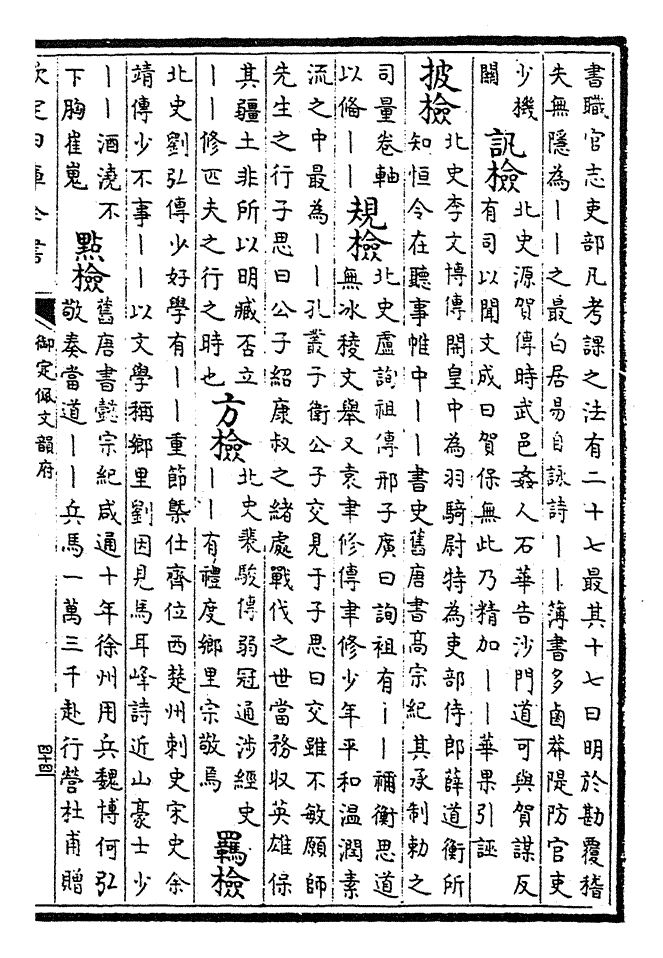 書職官志吏部凡考課之法有二十七最其十七曰明於勘覆稽
失無隱為｜｜之最白居易自詠詩｜｜簿書多鹵莽隄防官吏
少機
關
訊檢
北史源賀傳時武邑姦人石華告沙門道可與賀謀反
有司以聞文成曰賀保無此乃精加｜｜華果引誣
披檢
北史李文博傳開皇中為羽騎尉特為吏部侍郎薛道衡所
知恒令在聽事帷中｜｜書史舊唐書高宗紀其承制勅之
司量卷軸
以俻｜｜
規檢
北史盧詢祖傳邢子廣曰詢祖有｜｜禰衡思道
無冰稜文舉又袁聿修傳聿修少年平和温潤素
流之中最為｜｜孔叢子衛公子交見于子思曰交雖不敏願師
先生之行子思曰公子紹康叔之緒處戰伐之世當務収英雄保
其疆土非所以明臧否立
｜｜修匹夫之行之時也
方檢
北史裴駿傳弱冠通涉經史
｜｜有禮度鄉里宗敬焉
羈檢
北史劉弘傳少好學有｜｜重節槩仕齊位西楚州刺史宋史余
靖傳少不事｜｜以文學稱鄉里劉因見馬耳峰詩近山豪士少
｜｜酒澆不
下胸崔嵬
點檢
舊唐書懿宗紀咸通十年徐州用兵魏博何弘
敬奏當道｜｜兵馬一萬三千赴行營杜甫贈
欽定四庫全書
御定佩文韻府
四十四